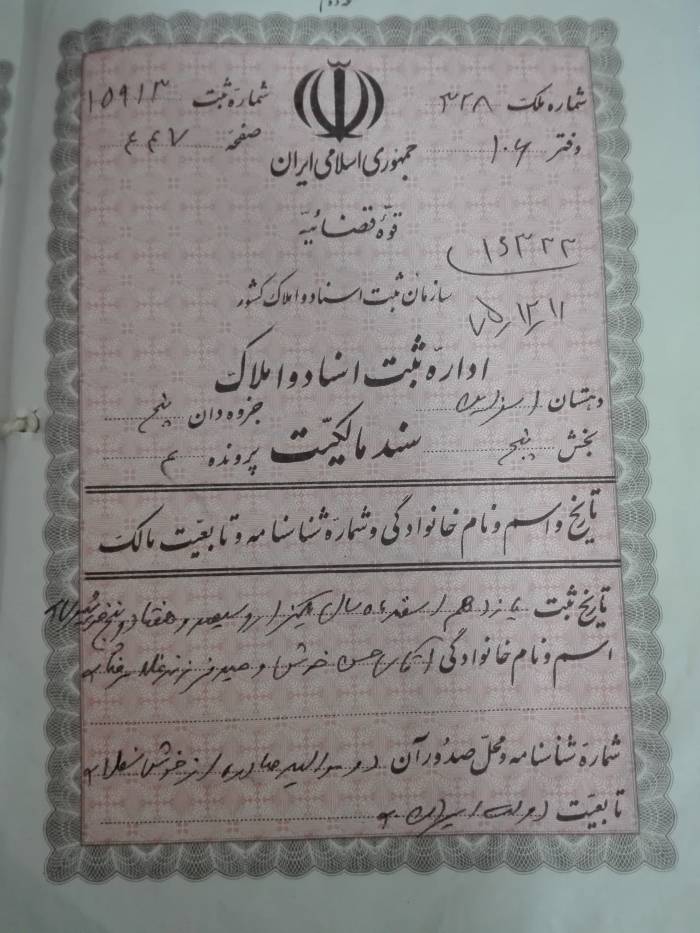 شماره ملک ۳۲۸ شماره ثبت ۱۵۹۱۳
دفتر ۱۰۶ صفحه ۴۴۷
جمهوری اسلامی ایران
قوّهٔ قضائیّه
۱۶۳۲۳
سازمان ثبت اسناد و املاک کشور
۷۵،۱۲،۱۱
ادارهٔ ثبت اسناد و املاک
دهستان جزوه‌دان پنج
بخش پنج سند مالکیّت پرونده ۴
تاریخ و اسم و نام خانوادگی و شمارهٔ شناسنامه و تابعیّت مالک
تاریخ ثبت یازدهم اسفند ماه سال یکهزار و سیصد و هفتاد و پنج
اسم و نام خانوادگی آقای حسن فرزند
شمارهٔ شناسنامه و محلّ صدور آن صادره از
تابعیّت دولت ایران